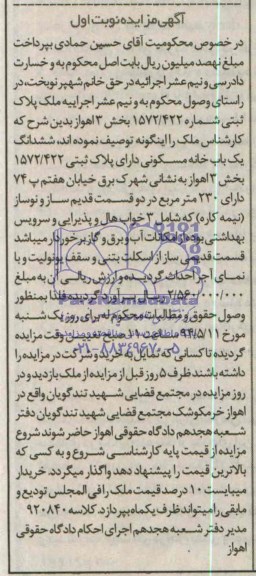 آگهی مزایده نوبت اول
در خصوص محکومیت آقای حسین حمادی بپرداخت
مبلغ نهصد میلیون ریال بابت اصل محکوم به و خسارت
دادرسی و نیم عشر اجرائیه در حق خانم شهپر نوبخت، در
راستای وصول محکوم به و نیم عشر اجراییه ملک پلاک
ثبتی شماره ۱۵۷۲/۴۲۲ بخش ۳ اهواز بدین شرح که
کارشناس ملک را اینگونه توصیف نموده اند، ششدانگ
یک باب خانه مسکونی دارای پلاک ثبتی ۱۵۷۲/۴۲۲
بخش ۳ اهواز به نشانی شهرک برق خیابان هفتم پ ۷۴
دارای ۲۳۰ متر مربع در دو قسمت قدیم ساز و نوساز
(نیمه کاره) که شامل ۳ خواب هال و پذیرایی و سرویس
بهداشتی بوده از امکانات آب و برق و گاز برخوردار میباشد
قسمت قدیمی ساز از اسکلت بتنی و سقف یونولیت و با
نمای آجر احداث گردیده و ارزش ریالی آن به مبلغ
۲/۵۶۰/۰۰۰/۰۰۰ ریال برآورد گردیده لذا بمنظور
وصول حقوق و مطالبات محکوم له برای روز یک شنبه
مورخ ۹۴/۵/۱۱ ساعت ۱۱ صبح تعیین وقت مزایده
گردیده تا کسانی که تمایل به خرید و شرکت در مزایده را
داشته باشند ظرف ۵ روز قبل از مزایده از ملک بازدید و در
روز مزایده در مجتمع قضایی شهید تندگویان واقع در
اهواز خرمکوشک مجتمع قضایی شهید تندگویان دفتر
شعبه هجدهم دادگاه حقوقی اهواز حاضر شوند شروع
مزایده از قیمت پایه کارشناسی شروع و به کسی که
بالاترین قیمت را پیشنهاد دهد واگذار میگردد. خریدار
میبایست ۱۰ درصد قیمت ملک را فی المجلس تودیع و
مابقی را میتواند ظرف یکماه بپردازد. کلاسه ۹۲۰۸۴۰
مدیر دفتر شعبه هجدهم اجرای احکام دادگاه حقوقی
اهواز